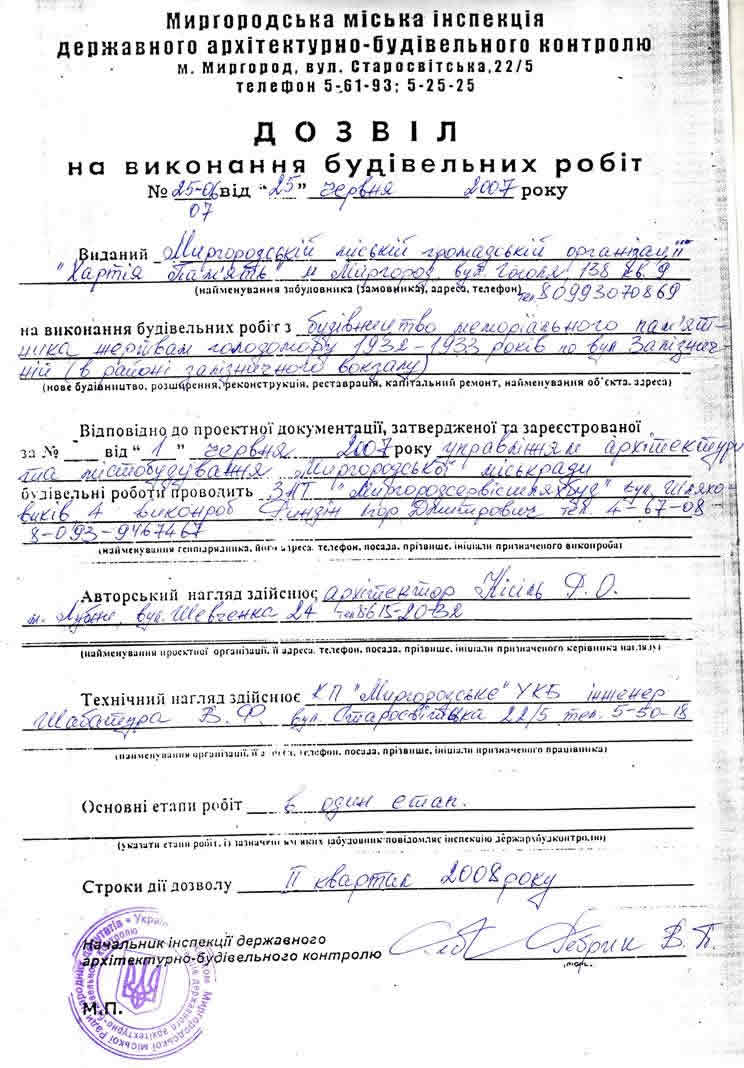 Миргородська міська інспекція
державного архітектурно-будівельного контролю
м. Миргород, вул. Старосвітська,22/5
телефон 5-61-93; 5-25-25
ДОЗВІЛ
на виконання будівельних робіт
№ 25-06 від "25" червня 2007 року
07
Виданий Миргородській міській громадській організації
"Хартія Пам'ять" м Миргород, вул Гоголя, 138 кв. 9
(найменування забудовника (замовника), адреса, телефон) тел 80993070869
на виконання будівельних робіт з будівництво меморіального пам'ят-
ника жертвам голодомору 1932-1933 років по вул Залізнич-
ній (в районі залізничного вокзалу)
(нове будівництво, розширення, реконструкція, реставрація, капітальний ремонт, найменування об'єкта, адреса)
Відповідно до проектної документації, затвердженої та зареєстрованої
за № від "1" червня 2007 року управлінням архітектури
та містобудування Миргородської міськради
будівельні роботи проводить ЗАТ "Миргородсервісшляхбуд" вул. Шляхо-
виків 4 виконроб Ігор Дмитрович тел. 4-67-08
8-093-9467467
(найменування генпідрядника, його адреса, телефон, посада, прізвище, ініціали призначеного виконроба)
Авторський нагляд здійснює архітектор Кісіль О.
м. Лубни, вул. Шевченка 24
(найменування проектної організації, її адреса, телефон, посада, прізвище, ініціали призначеного керівника нагляду)
Технічний нагляд здійснює КП "Миргородське" УКБ інженер
Шабатура В.Ф. вул. Старосвітська 22/5 тел. 5-50-18
(найменування організації, її адреса, телефон, посада, прізвище, ініціали призначеного працівника)
Основні етапи робіт в один етап.
(указати етапи робіт, із зазначенням яких забудовник повідомляє інспекцію держархбудконтролю)
Строки дії дозволу II квартал 2008 року
Начальник інспекції державного
архітектурно-будівельного контролю В. П.
М.П.